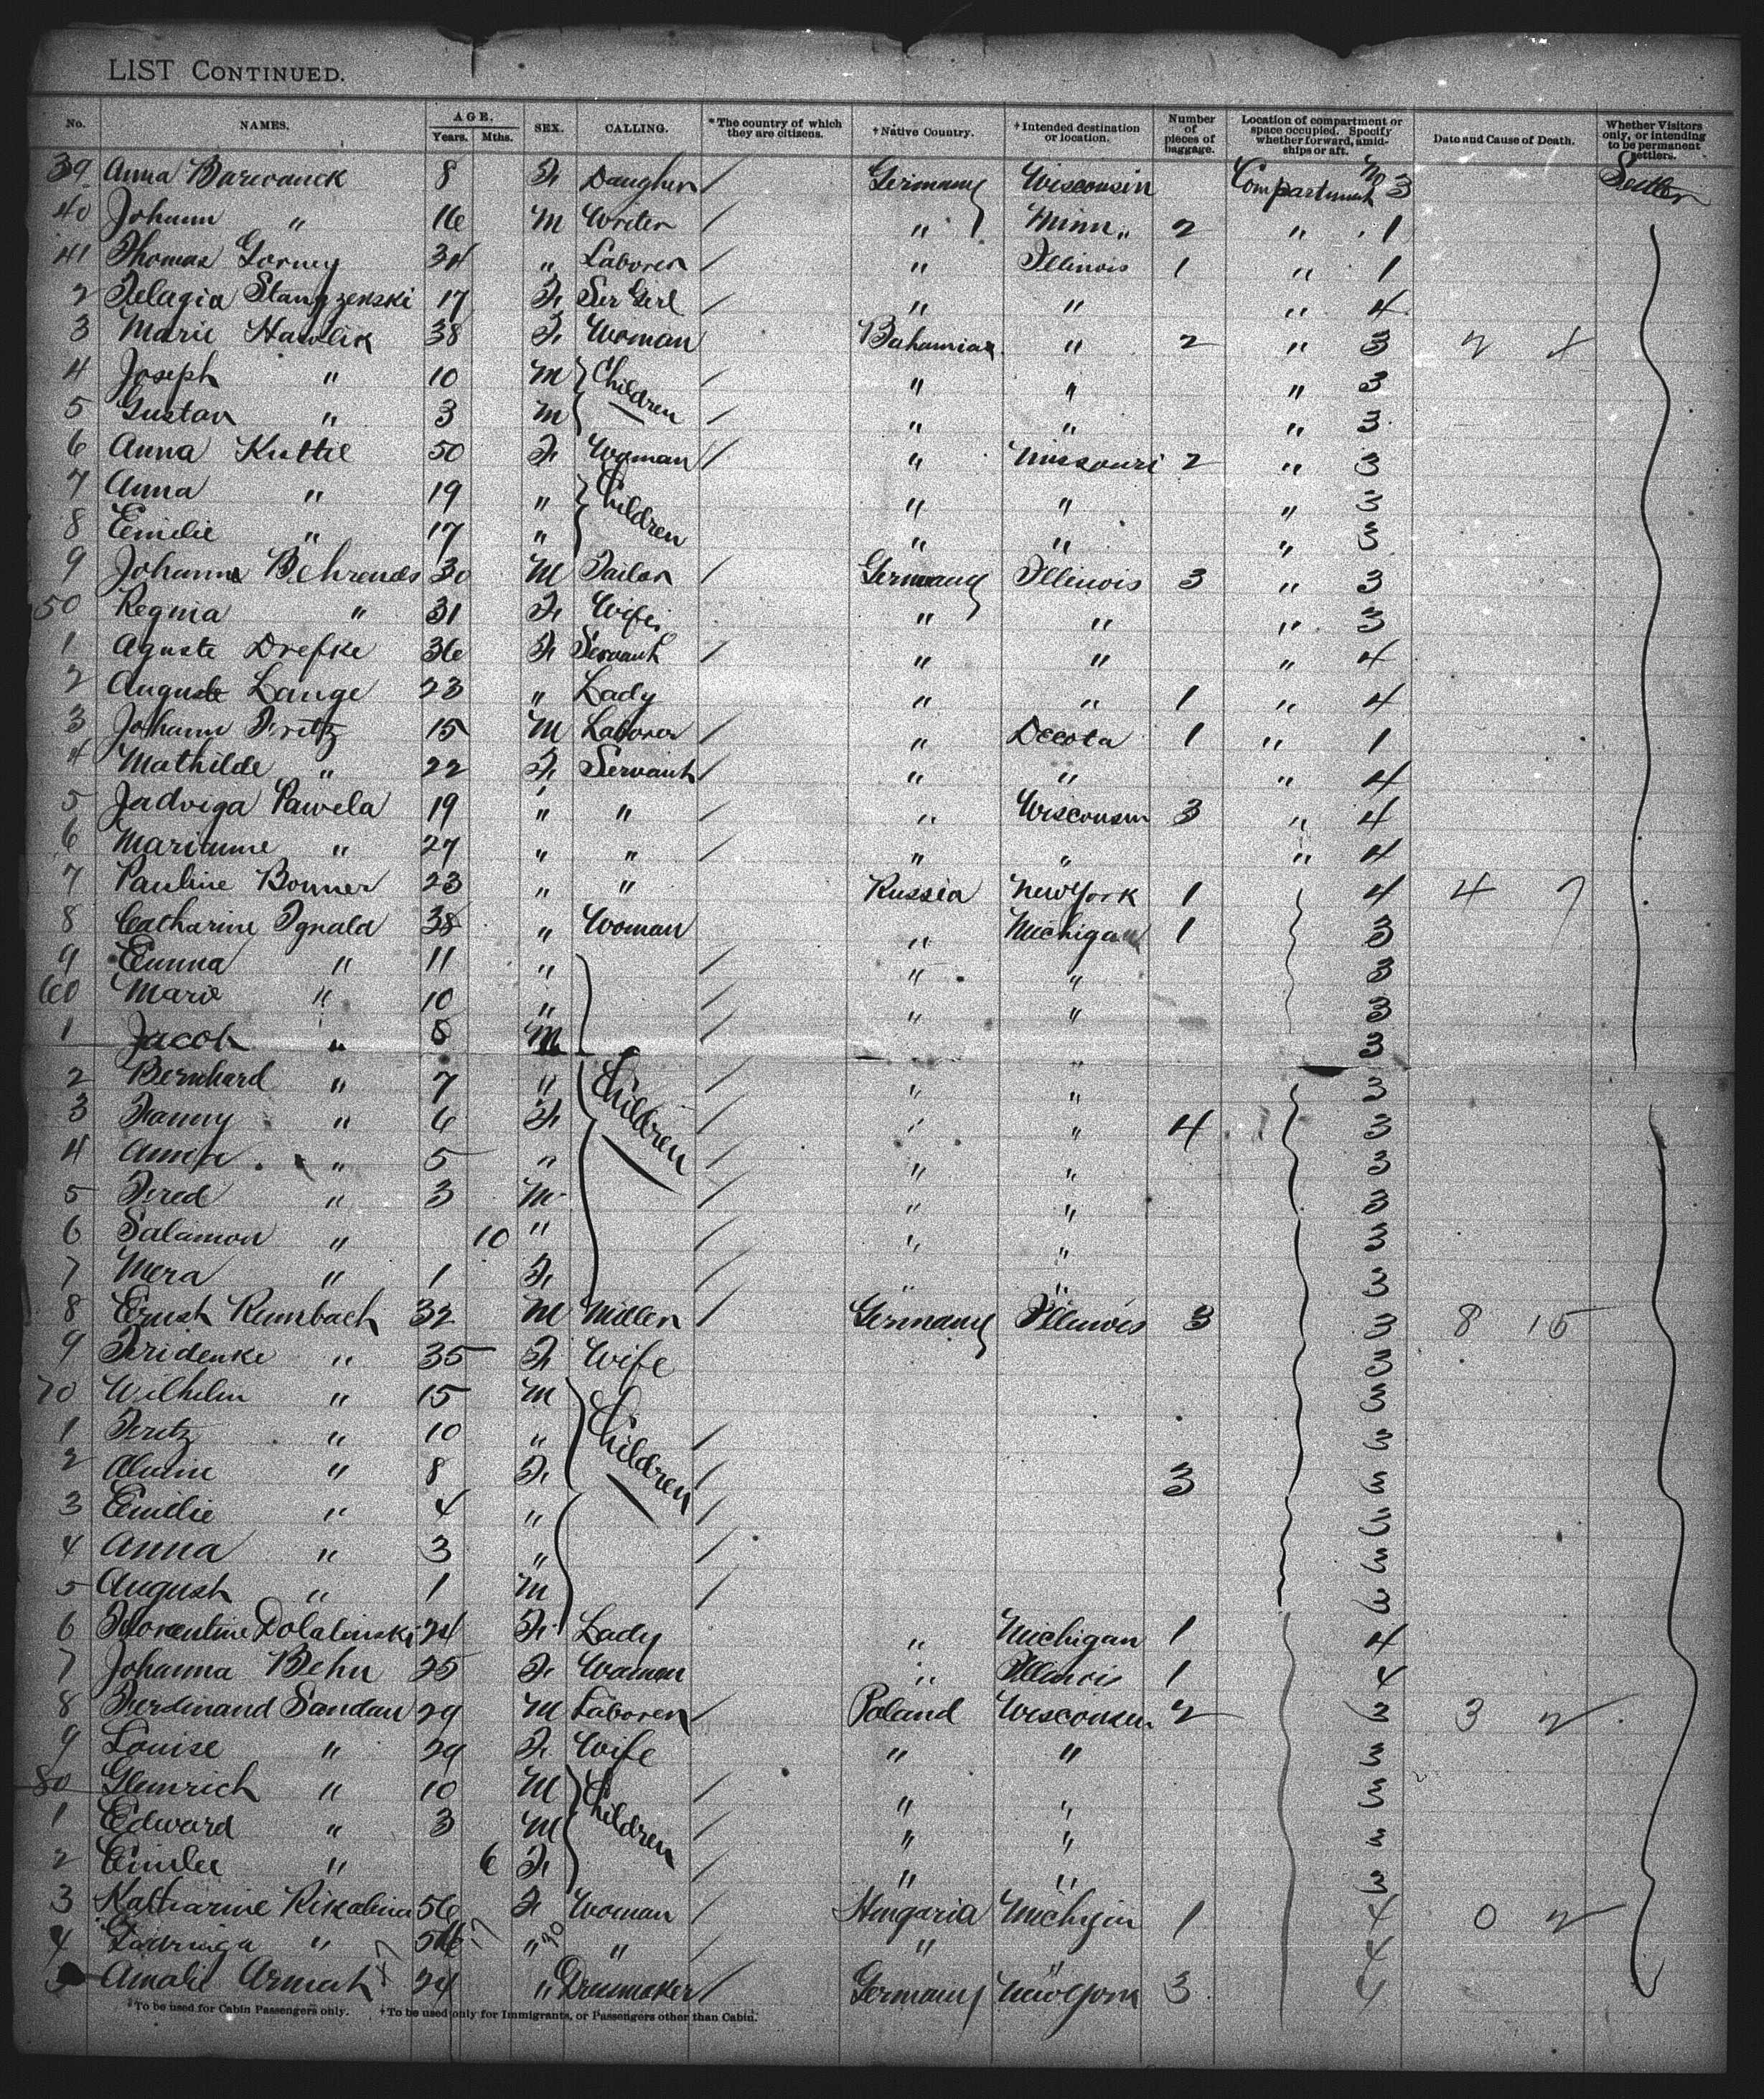 LIST CONTINUED.
No. NAMES. AGE. Years. Mths. SEX. CALLING. *The country of which they are citizens. †Native Country. †Intended destination or location. Number of pieces of baggage. Location of compartment or space occupied. Specify whether forward, amidships or aft. Date and Cause of Death. Whether Visitors only, or intending to be permanent settlers.
39 Anna Barwanck 8 F. Daughter / Germany Wisconsin Compartment No 3 Settler
40 Johann " 16 M Writer / " Minn " 2 " 1
41 Thomas Gorney 34 " Laborer / " Illinois 1 " 1
2 Pelagia 17 F. Ser Girl / " " " 4
3 Marie Hawlik 38 F. Woman Bahamian " 2 " 3 2 4
4 Joseph " 10 M Children / " " " 3
5 Gustav " 3 M / " " " 3
6 Anna Kuttil 50 F. Woman / " Missouri 2 " 3
7 Anna " 19 " Children " " " 3
8 Emilie " 17 " " " " 3
9 Johann Behrends 30 M Tailor / Germany Illinois 3 " 3
50 Regina " 31 F. Wife " " " 3
1 Aguste Drefke 36 F. Servant / " " " 4
2 Auguste Lange 23 " Lady " " 1 " 4
3 Johann Fritz 15 M Laborer / " Decota 1 " 1
4 Mathilde " 22 F. Servant / " " " 4
5 Jadviga Pawela 19 " " / " Wisconsin 3 " 4
6 Marianne " 27 " " / " " " 4
7 Pauline Bonner 23 " " Russia New York 1 4 4 7
8 Catharine Ignald 38 " Woman " Michigan 1 3
9 Emma " 11 " / " " 3
60 Marie " 10 " / " " 3
1 Jacob " 8 M / " 3
2 Bernhard " 7 " Children / " " 3
3 Fanny " 6 F. / " " 4 3
4 Anna " 5 " / " " 3
5 Fred " 3 M / " " 3
6 Salamon " 10 " / " " 3
7 Mera " 1 F. / " " 3
8 Ernst Rumbach 32 M Miller / Germany Illinois 3 3 8 15
9 " 35 F. Wife 3
70 Wilhelm " 15 M Children 3
1 Fritz " 10 " / 3
2 " 8 F. / 3 3
3 Emilie " 4 " / 3
4 Anna " 3 " / 3
5 August " 1 M / 3
6 Florentine Dolalinski 24 F. Lady " Michigan 1 4
7 Johanna Behn 25 F. Woman " Illinois 1 4
8 Ferdinand Sandau 29 M Laborer / Poland Wisconsin 2 3 3 2
9 Louise " 29 F. Wife " " 3
80 Heinrich " 10 M Children / " " 3
1 Edward " 3 M / " " 3
2 Emilie " 6 F. / " " 3
3 Katharine 56 F. Woman / Hungaria Michigan 1 4 0 2
4 " " " / " 4
5 Amalie 24 " Dressmaker / Germany New York 3 4
*To be used for Cabin Passengers only. †To be used only for Immigrants, or Passengers other than Cabin.